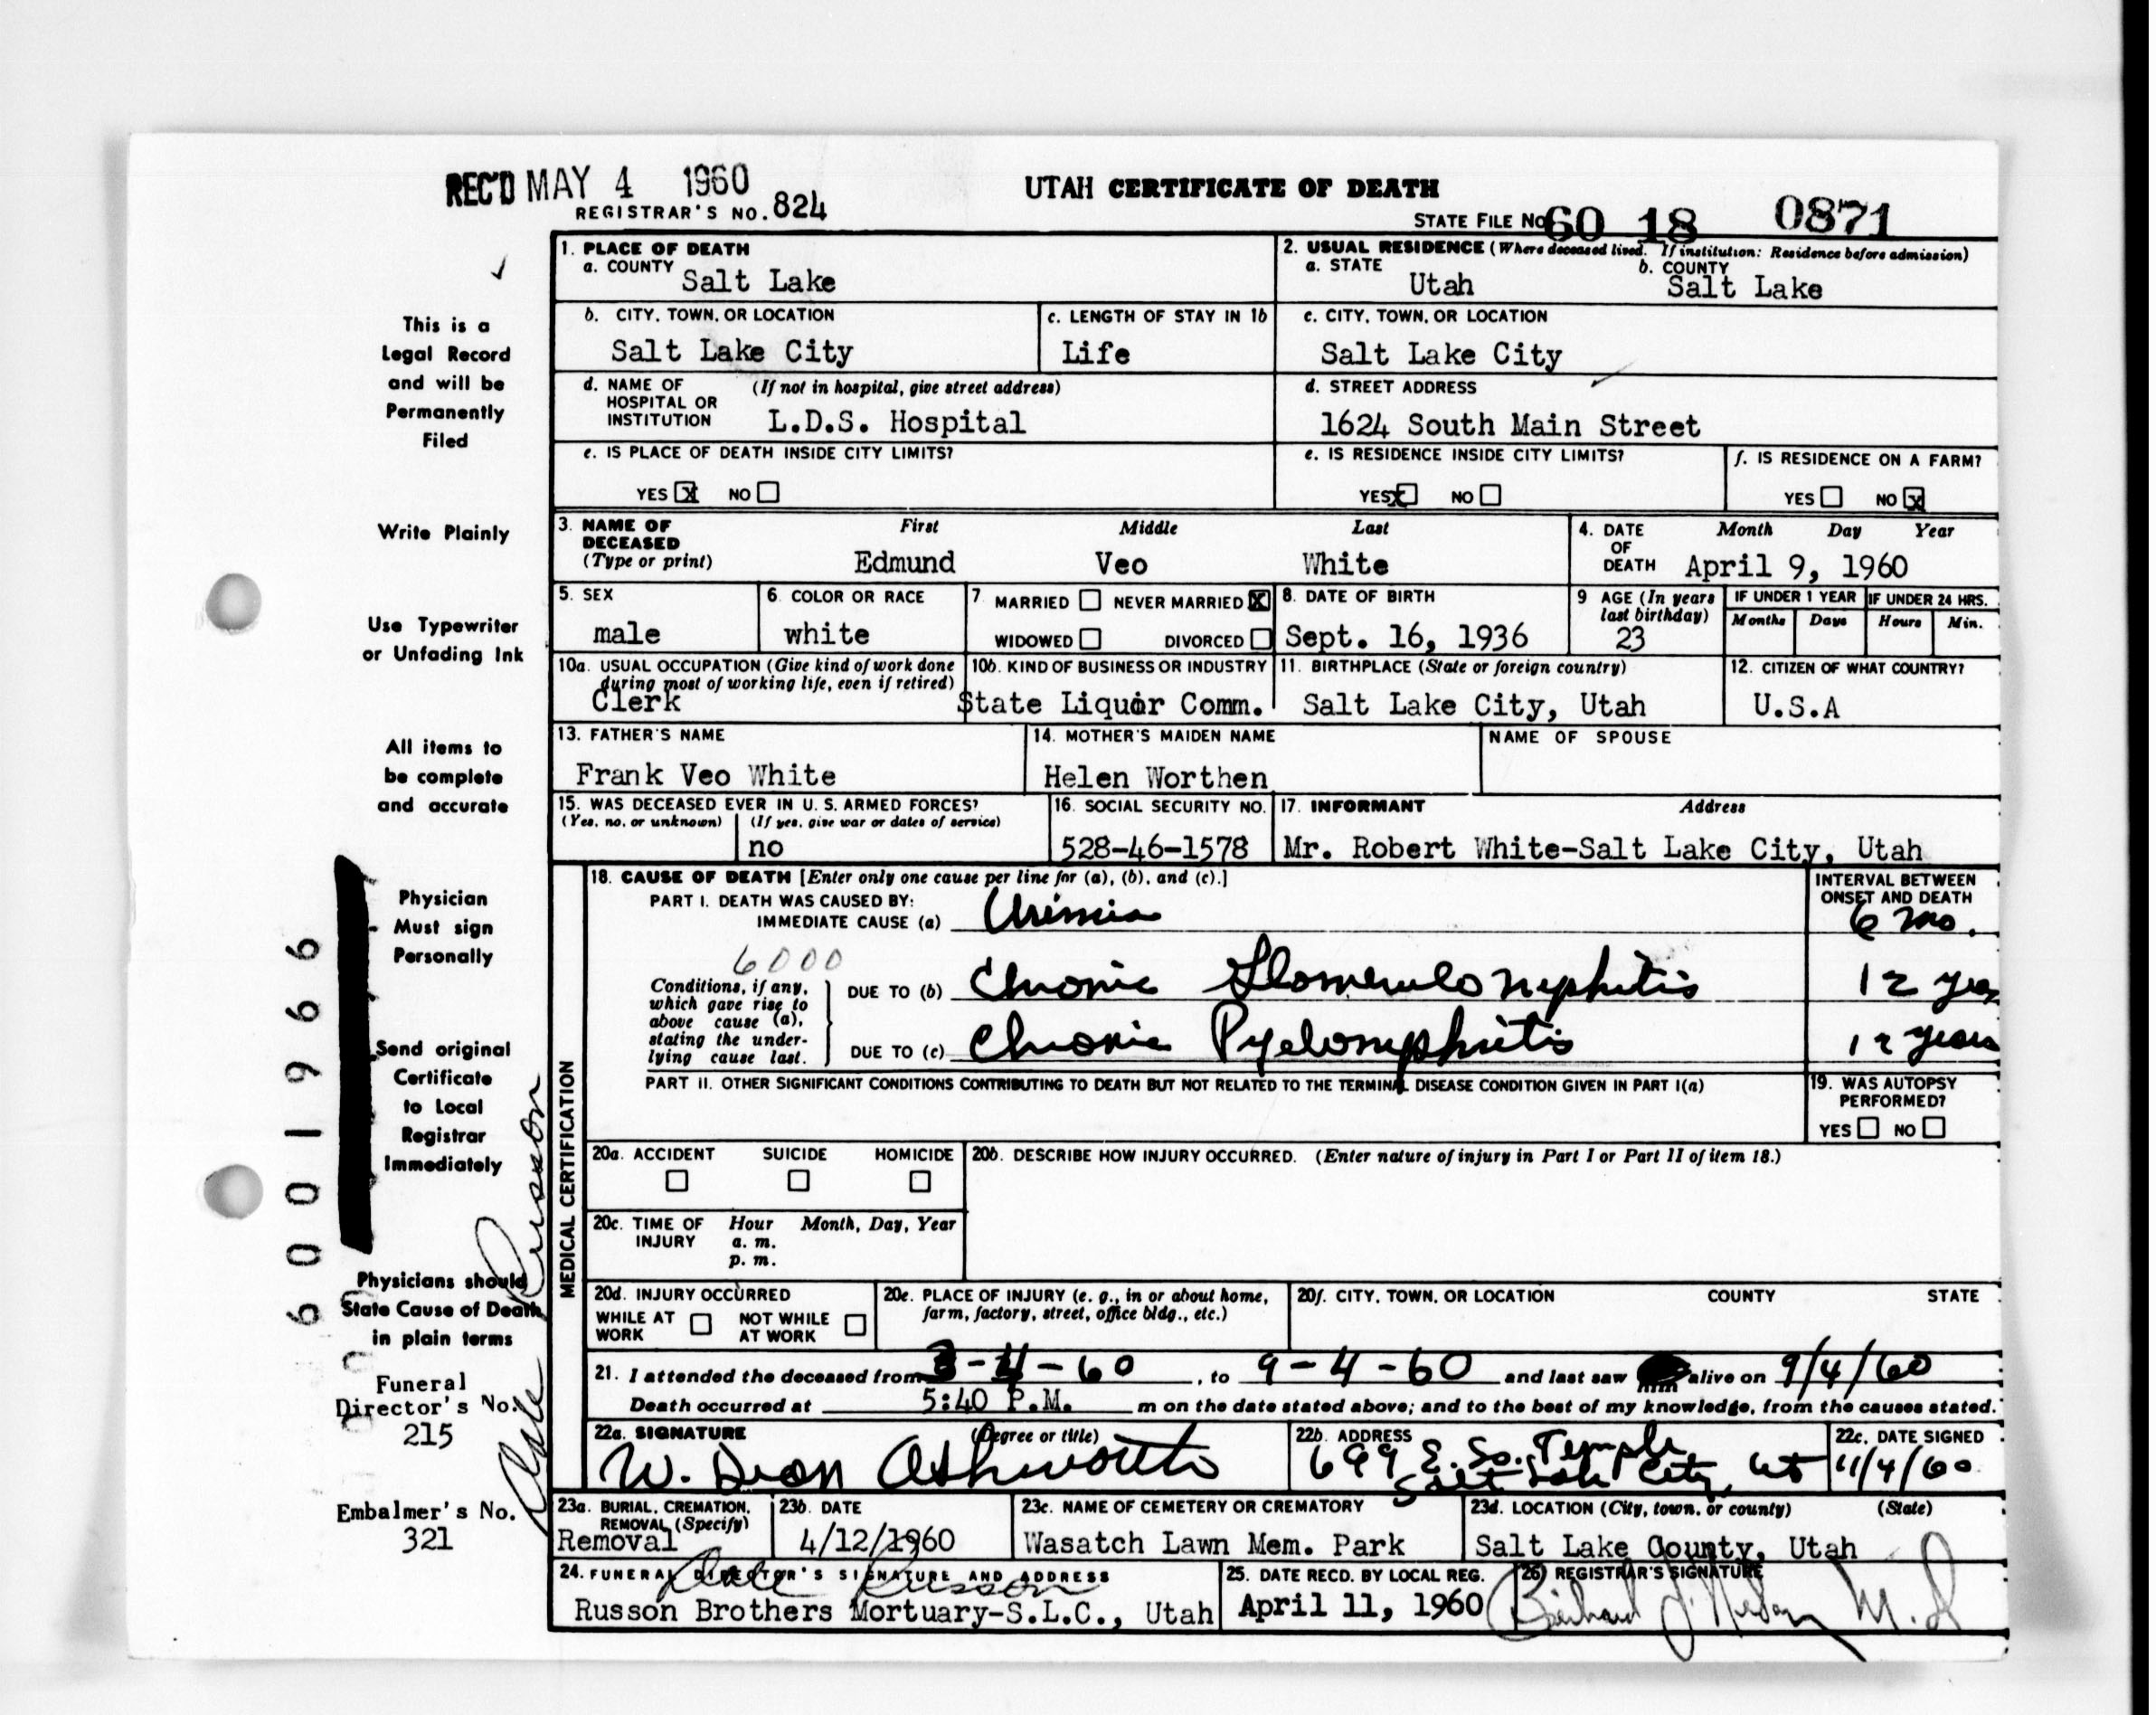 REC'D MAY 4 1960
REGISTRAR'S NO. 824
UTAH CERTIFICATE OF DEATH
STATE FILE NO. 60 18 0871
1. PLACE OF DEATH
a. COUNTY
Salt Lake
2. USUAL RESIDENCE (Where deceased lived. If institution: Residence before admission)
a. STATE
Utah
b. COUNTY
Salt Lake
b. CITY, TOWN, OR LOCATION
Salt Lake City
c. LENGTH OF STAY IN 1b
Life
c. CITY, TOWN, OR LOCATION
Salt Lake City
d. NAME OF HOSPITAL OR INSTITUTION
(If not in hospital, give street address)
L.D.S. Hospital
d. STREET ADDRESS
1624 South Main Street
e. IS PLACE OF DEATH INSIDE CITY LIMITS?
YES X NO
e. IS RESIDENCE INSIDE CITY LIMITS?
YES X NO
f. IS RESIDENCE ON A FARM?
YES NO X
3. NAME OF DECEASED
(Type or print)
First Middle Last
Edmund Veo White
4. DATE OF DEATH
Month Day Year
April 9, 1960
5. SEX
male
6. COLOR OR RACE
white
7 MARRIED NEVER MARRIED X
WIDOWED DIVORCED
8. DATE OF BIRTH
Sept. 16, 1936
9 AGE (In years last birthday)
23
IF UNDER 1 YEAR
Months Days
IF UNDER 24 HRS.
Hours Min.
10a. USUAL OCCUPATION (Give kind of work done during most of working life, even if retired)
Clerk
10b. KIND OF BUSINESS OR INDUSTRY
State Liquor Comm.
11. BIRTHPLACE (State or foreign country)
Salt Lake City, Utah
12. CITIZEN OF WHAT COUNTRY?
U.S.A
13. FATHER'S NAME
Frank Veo White
14. MOTHER'S MAIDEN NAME
Helen Worthen
NAME OF SPOUSE
15. WAS DECEASED EVER IN U. S. ARMED FORCES?
(Yes, no, or unknown) (If yes, give war or dates of service)
no
16. SOCIAL SECURITY NO.
528-46-1578
17. INFORMANT Address
Mr. Robert White-Salt Lake City, Utah
MEDICAL CERTIFICATION
18. CAUSE OF DEATH [Enter only one cause per line for (a), (b), and (c).]
INTERVAL BETWEEN ONSET AND DEATH
PART I. DEATH WAS CAUSED BY:
IMMEDIATE CAUSE (a) Urimia
6 mo.
6000
Conditions, if any, which gave rise to above cause (a), stating the underlying cause last.
DUE TO (b) Chronic Glomerulo nephitis
12 years
DUE TO (c) Chronic Pyelonephritis
12 years
PART II. OTHER SIGNIFICANT CONDITIONS CONTRIBUTING TO DEATH BUT NOT RELATED TO THE TERMINAL DISEASE CONDITION GIVEN IN PART I(a)
19. WAS AUTOPSY PERFORMED?
YES NO
20a. ACCIDENT SUICIDE HOMICIDE
20b. DESCRIBE HOW INJURY OCCURRED. (Enter nature of injury in Part I or Part II of item 18.)
20c. TIME OF INJURY
Hour Month, Day, Year
a. m.
p. m.
20d. INJURY OCCURRED
WHILE AT WORK NOT WHILE AT WORK
20e. PLACE OF INJURY (e. g., in or about home, farm, factory, street, office bldg., etc.)
20f. CITY, TOWN, OR LOCATION COUNTY STATE
21. I attended the deceased from 3-4-60, to 9-4-60 and last saw him alive on 9/4/60
Death occurred at 5:40 P.M. m on the date stated above; and to the best of my knowledge, from the causes stated.
22a. SIGNATURE (Degree or title)
W. Dean Ashworth
22b. ADDRESS
699 E. So. Temple
Salt Lake City, Ut
22c. DATE SIGNED
11/4/60
23a. BURIAL, CREMATION, REMOVAL (Specify)
Removal
23b. DATE
4/12/1960
23c. NAME OF CEMETERY OR CREMATORY
Wasatch Lawn Mem. Park
23d. LOCATION (City, town, or county) (State)
Salt Lake County, Utah
24. FUNERAL DIRECTOR'S SIGNATURE AND ADDRESS
Dale Russon
Russon Brothers Mortuary-S.L.C., Utah
25. DATE RECD. BY LOCAL REG.
April 11, 1960
26) REGISTRAR'S SIGNATURE
M.D
This is a
Legal Record
and will be
Permanently
Filed
Write Plainly
Use Typewriter
or Unfading Ink
All items to
be complete
and accurate
Physician
Must sign
Personally
Send original
Certificate
to Local
Registrar
Immediately
Physicians should
State Cause of Death
in plain terms
Funeral
Director's No.
215
Embalmer's No.
321
Dale Russon
6001966